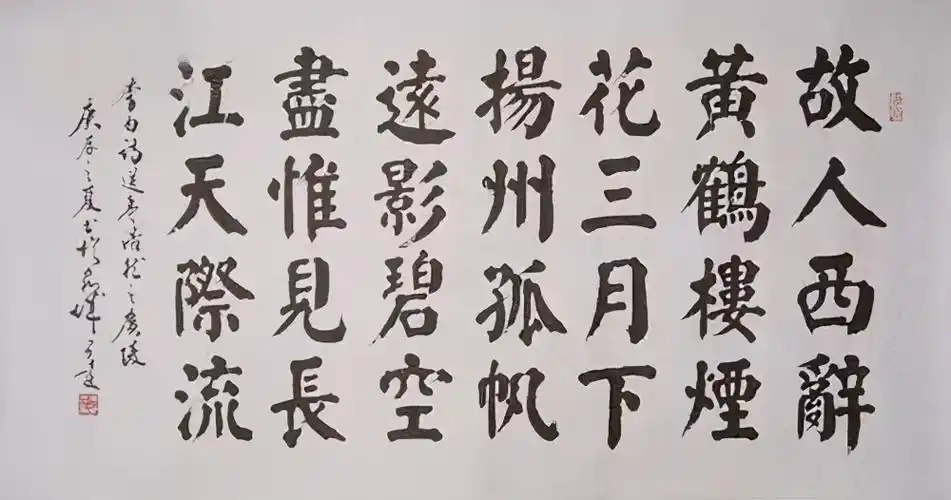 故人西辭
黃鶴樓煙
花三月下
揚州孤帆
遠影碧空
盡惟見長
江天際流
李白詩送孟浩然之廣陵
庚辰之夏書於